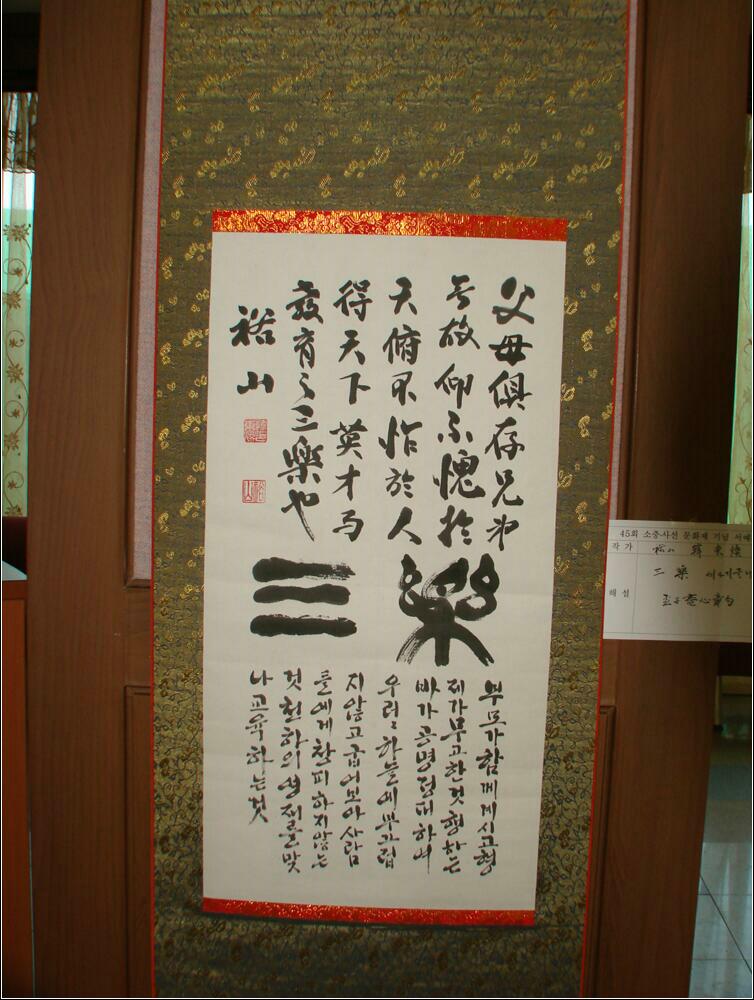 父母俱存兄弟
无故仰不愧於
天俯不怍於人
得天下英才而
敎育之三樂也
裕山
三樂
부모가함께계시고형
제가무고한것행하는
바가공명정대하여
우러러하늘에부끄럽
지않고굽어보아사람
들에게창피하지않는
것천하의영재를맞
나교육하는것
45회 소충·사선 문화제 기념 서예
작가
三樂 세가지즐거
해설 孟子 盡心章句